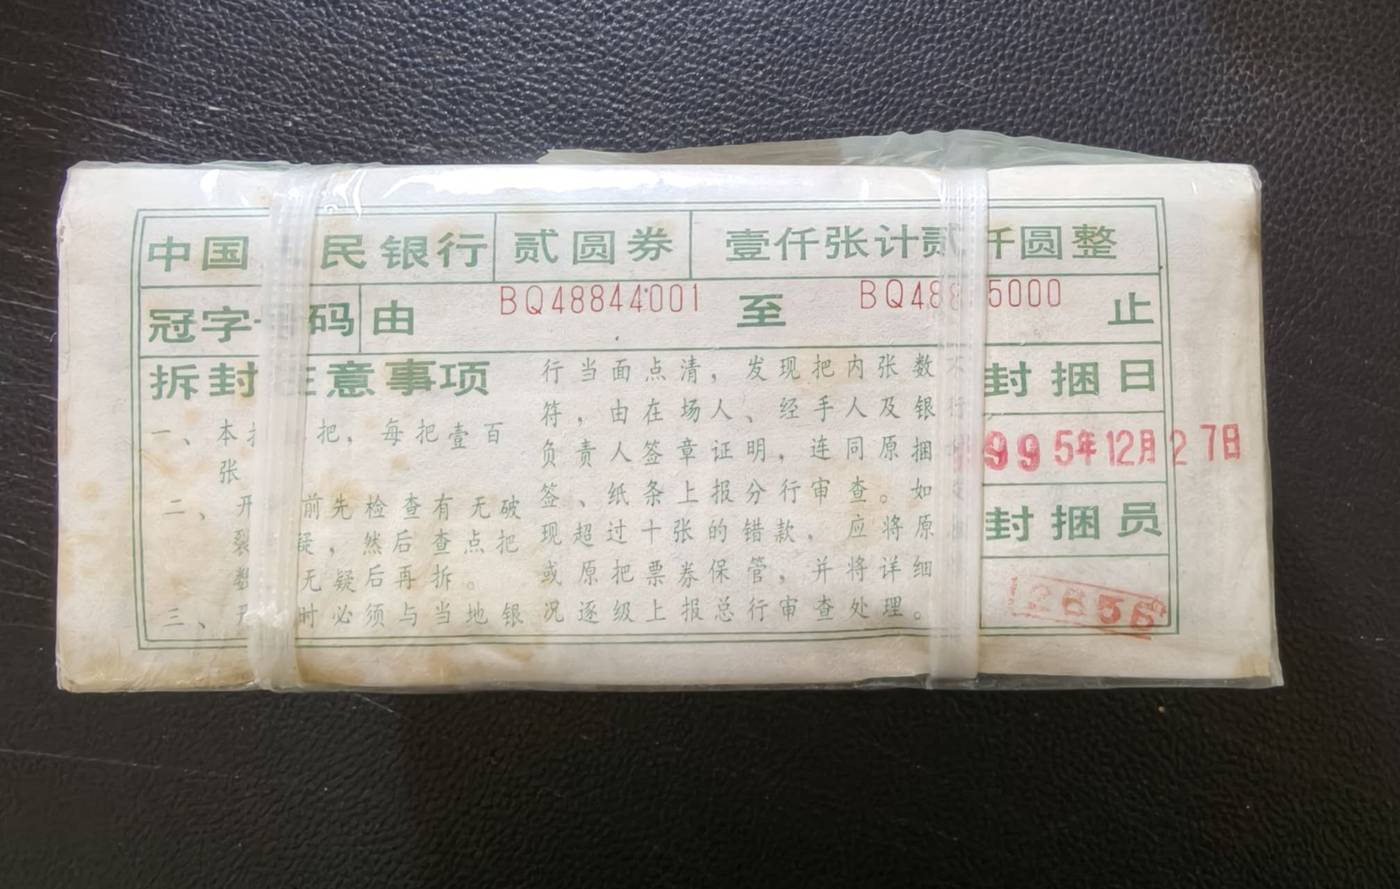 中国 民银行 贰圆券 壹仟张计贰仟圆整
冠字号码 由 BQ48844001 至 BQ488 5000 止
拆封注意事项
一、本 把，每把壹百
张
二、开 前先检查有无破
裂 疑，然后查点把
数 无疑后再拆。
三、开 时必须与当地银
行当面点清，发现把内张数不
符，由在场人、经手人及银行
负责人签章证明，连同原捆
签、纸条上报分行审查。如
现超过十张的错款，应将原
或原把票券保管，并将详细
况逐级上报总行审查处理。
封捆日
995年12月27日
封捆员